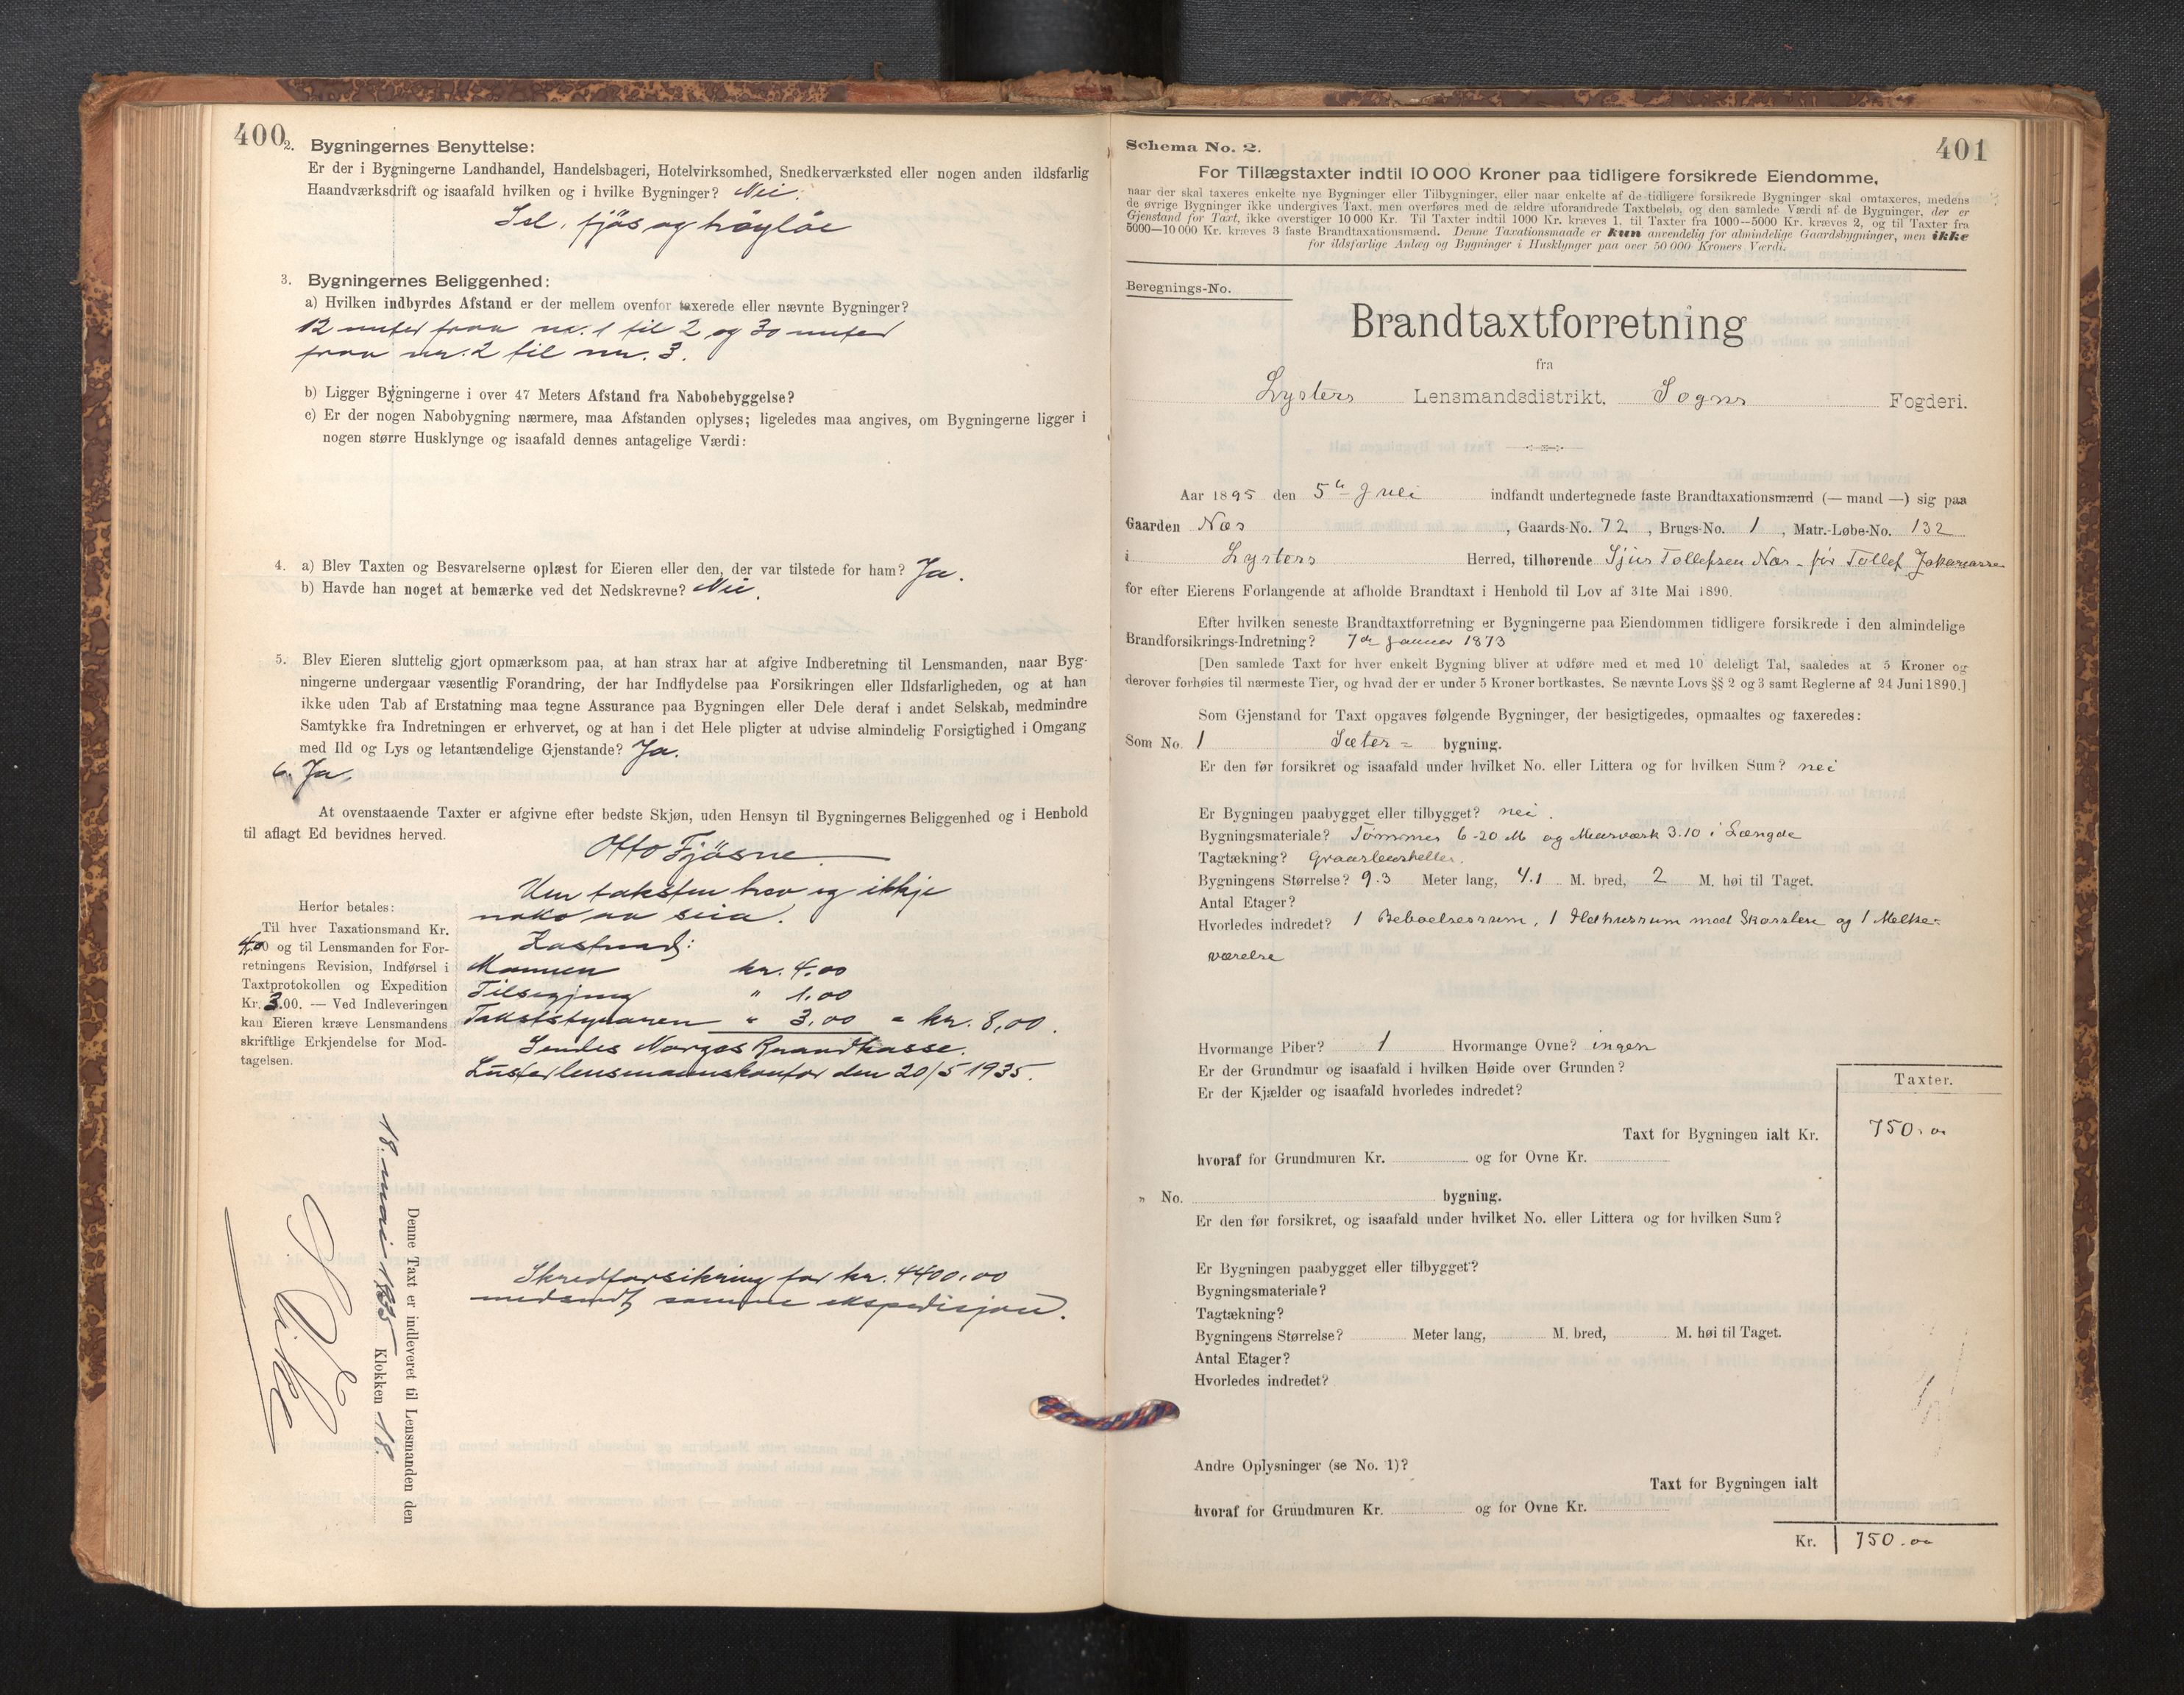 400
2. Bygningernes Benyttelse:
Er der i Bygningerne Landhandel, Handelsbageri, Hotelvirksomhed, Snedkerværksted eller nogen anden ildsfarlig
Haandværksdrift og isaafald hvilken og i hvilke Bygninger? Nei.
Sel, fjös og höyløe
3. Bygningernes Beliggenhed:
a) Hvilken indbyrdes Afstand er der mellem ovenfor taxerede eller nævnte Bygninger?
12 meter fraa nr. 1 til 2 og 30 meter
fraa nr. 2 til nr. 3.
b) Ligger Bygningerne i over 47 Meters Afstand fra Nabobebyggelse?
c) Er der nogen Nabobygning nærmere, maa Afstanden oplyses; ligeledes maa angives, om Bygningerne ligger i
nogen større Husklynge og isaafald dennes antagelige Værdi:
4. a) Blev Taxten og Besvarelserne oplæst for Eieren eller den, der var tilstede for ham? Ja.
b) Havde han noget at bemærke ved det Nedskrevne? Nei.
5. Blev Eieren sluttelig gjort opmærksom paa, at han strax har at afgive Indberetning til Lensmanden, naar Byg-
ningerne undergaar væsentlig Forandring, der har Indflydelse paa Forsikringen eller Ildsfarligheden, og at han
ikke uden Tab af Erstatning maa tegne Assurance paa Bygningen eller Dele deraf i andet Selskab, medmindre
Samtykke fra Indretningen er erhvervet, og at han i det Hele pligter at udvise almindelig Forsigtighed i Omgang
med Ild og Lys og letantændelige Gjenstande? Ja.
6. Ja.
At ovenstaaende Taxter er afgivne efter bedste Skjøn, uden Hensyn til Bygningernes Beliggenhed og i Henhold
til aflagt Ed bevidnes herved.
Otto Fjösne.
Um taksten hev eg ikkje
noko aa seia.
Herfor betales:
Til hver Taxationsmand Kr.
4.00 og til Lensmanden for For-
retningens Revision, Indførsel i
Taxtprotokollen og Expedition
Kr. 3.00. — Ved Indleveringen
kan Eieren kræve Lensmandens
skriftlige Erkjendelse for Mod-
tagelsen.
Kostnad:
Mannen kr. 4.00
Tilsegjing " 1.00
Takststyraren " 3.00 = kr. 8,00.
Sendes Norges Brandkasse.
Luster lensmannskontor den 20/5 1935.
Denne Taxt er indleveret til Lensmanden den
18. mai 1935 Klokken 18.
Skredforsikring for kr. 4400.00
medsendt samme ekspedisjon.
401
Schema No. 2.
For Tillægstaxter indtil 10 000 Kroner paa tidligere forsikrede Eiendomme,
naar der skal taxeres enkelte nye Bygninger eller Tilbygninger, eller naar enkelte af de tidligere forsikrede Bygninger skal omtaxeres, medens
de øvrige Bygninger ikke undergives Taxt, men overføres med de ældre uforandrede Taxtbeløb, og den samlede Værdi af de Bygninger, der er
Gjenstand for Taxt, ikke overstiger 10 000 Kr. Til Taxter indtil 1000 Kr. kræves 1, til Taxter fra 1000—5000 Kr. kræves 2, og til Taxter fra
5000—10 000 Kr. kræves 3 faste Brandtaxationsmænd. Denne Taxationsmaade er kun anvendelig for almindelige Gaardsbygninger, men ikke
for ildsfarlige Anlæg og Bygninger i Husklynger paa over 50 000 Kroners Værdi.
Beregnings-No.
Brandtaxtforretning
fra
Lysters Lensmandsdistrikt, Sogns Fogderi.
Aar 1895 den 5te Juli indfandt undertegnede faste Brandtaxationsmænd (— mand —) sig paa
Gaarden Næs, Gaards-No. 72, Brugs-No. 1, Matr.-Løbe-No. 132
i Lysters Herred, tilhørende Sjur Tollefsen Næs – for Tollef
for efter Eierens Forlangende at afholde Brandtaxt i Henhold til Lov af 31te Mai 1890.
Efter hvilken seneste Brandtaxtforretning er Bygningerne paa Eiendommen tidligere forsikrede i den almindelige
Brandforsikrings-Indretning? 7de Januar 1873
[Den samlede Taxt for hver enkelt Bygning bliver at udføre med et med 10 deleligt Tal, saaledes at 5 Kroner og
derover forhøies til nærmeste Tier, og hvad der er under 5 Kroner bortkastes. Se nævnte Lovs §§ 2 og 3 samt Reglerne af 24 Juni 1890.]
Som Gjenstand for Taxt opgaves følgende Bygninger, der besigtigedes, opmaaltes og taxeredes:
Som No. 1 Sæter- bygning.
Er den før forsikret og isaafald under hvilket No. eller Littera og for hvilken Sum? nei
Er Bygningen paabygget eller tilbygget? nei.
Bygningsmateriale? Tømmer 6-20 M og Murværk 3.10 i Længde
Tagtækning? Graasteinsheller.
Bygningens Størrelse? 9.3 Meter lang, 4.1 M. bred, 2 M. høi til Taget.
Antal Etager?
Hvorledes indredet? 1 Beboelsesrum, 1 Ildhusrum med Skorsten og 1 Melke-
værelse
Hvormange Piber? 1 Hvormange Ovne? ingen
Er der Grundmur og isaafald i hvilken Høide over Grunden?
Er der Kjælder og isaafald hvorledes indredet?
Taxter.
Taxt for Bygningen ialt Kr. 750.00
hvoraf for Grundmuren Kr. og for Ovne Kr.
" No. bygning.
Er den før forsikret, og isaafald under hvilket No. eller Littera og for hvilken Sum?
Er Bygningen paabygget eller tilbygget?
Bygningsmateriale?
Tagtækning?
Bygningens Størrelse? Meter lang, M. bred, M. høi til Taget.
Antal Etager?
Hvorledes indredet?
Andre Oplysninger (se No. 1)?
Taxt for Bygningen ialt
hvoraf for Grundmuren Kr. og for Ovne Kr.
Kr. 750.00